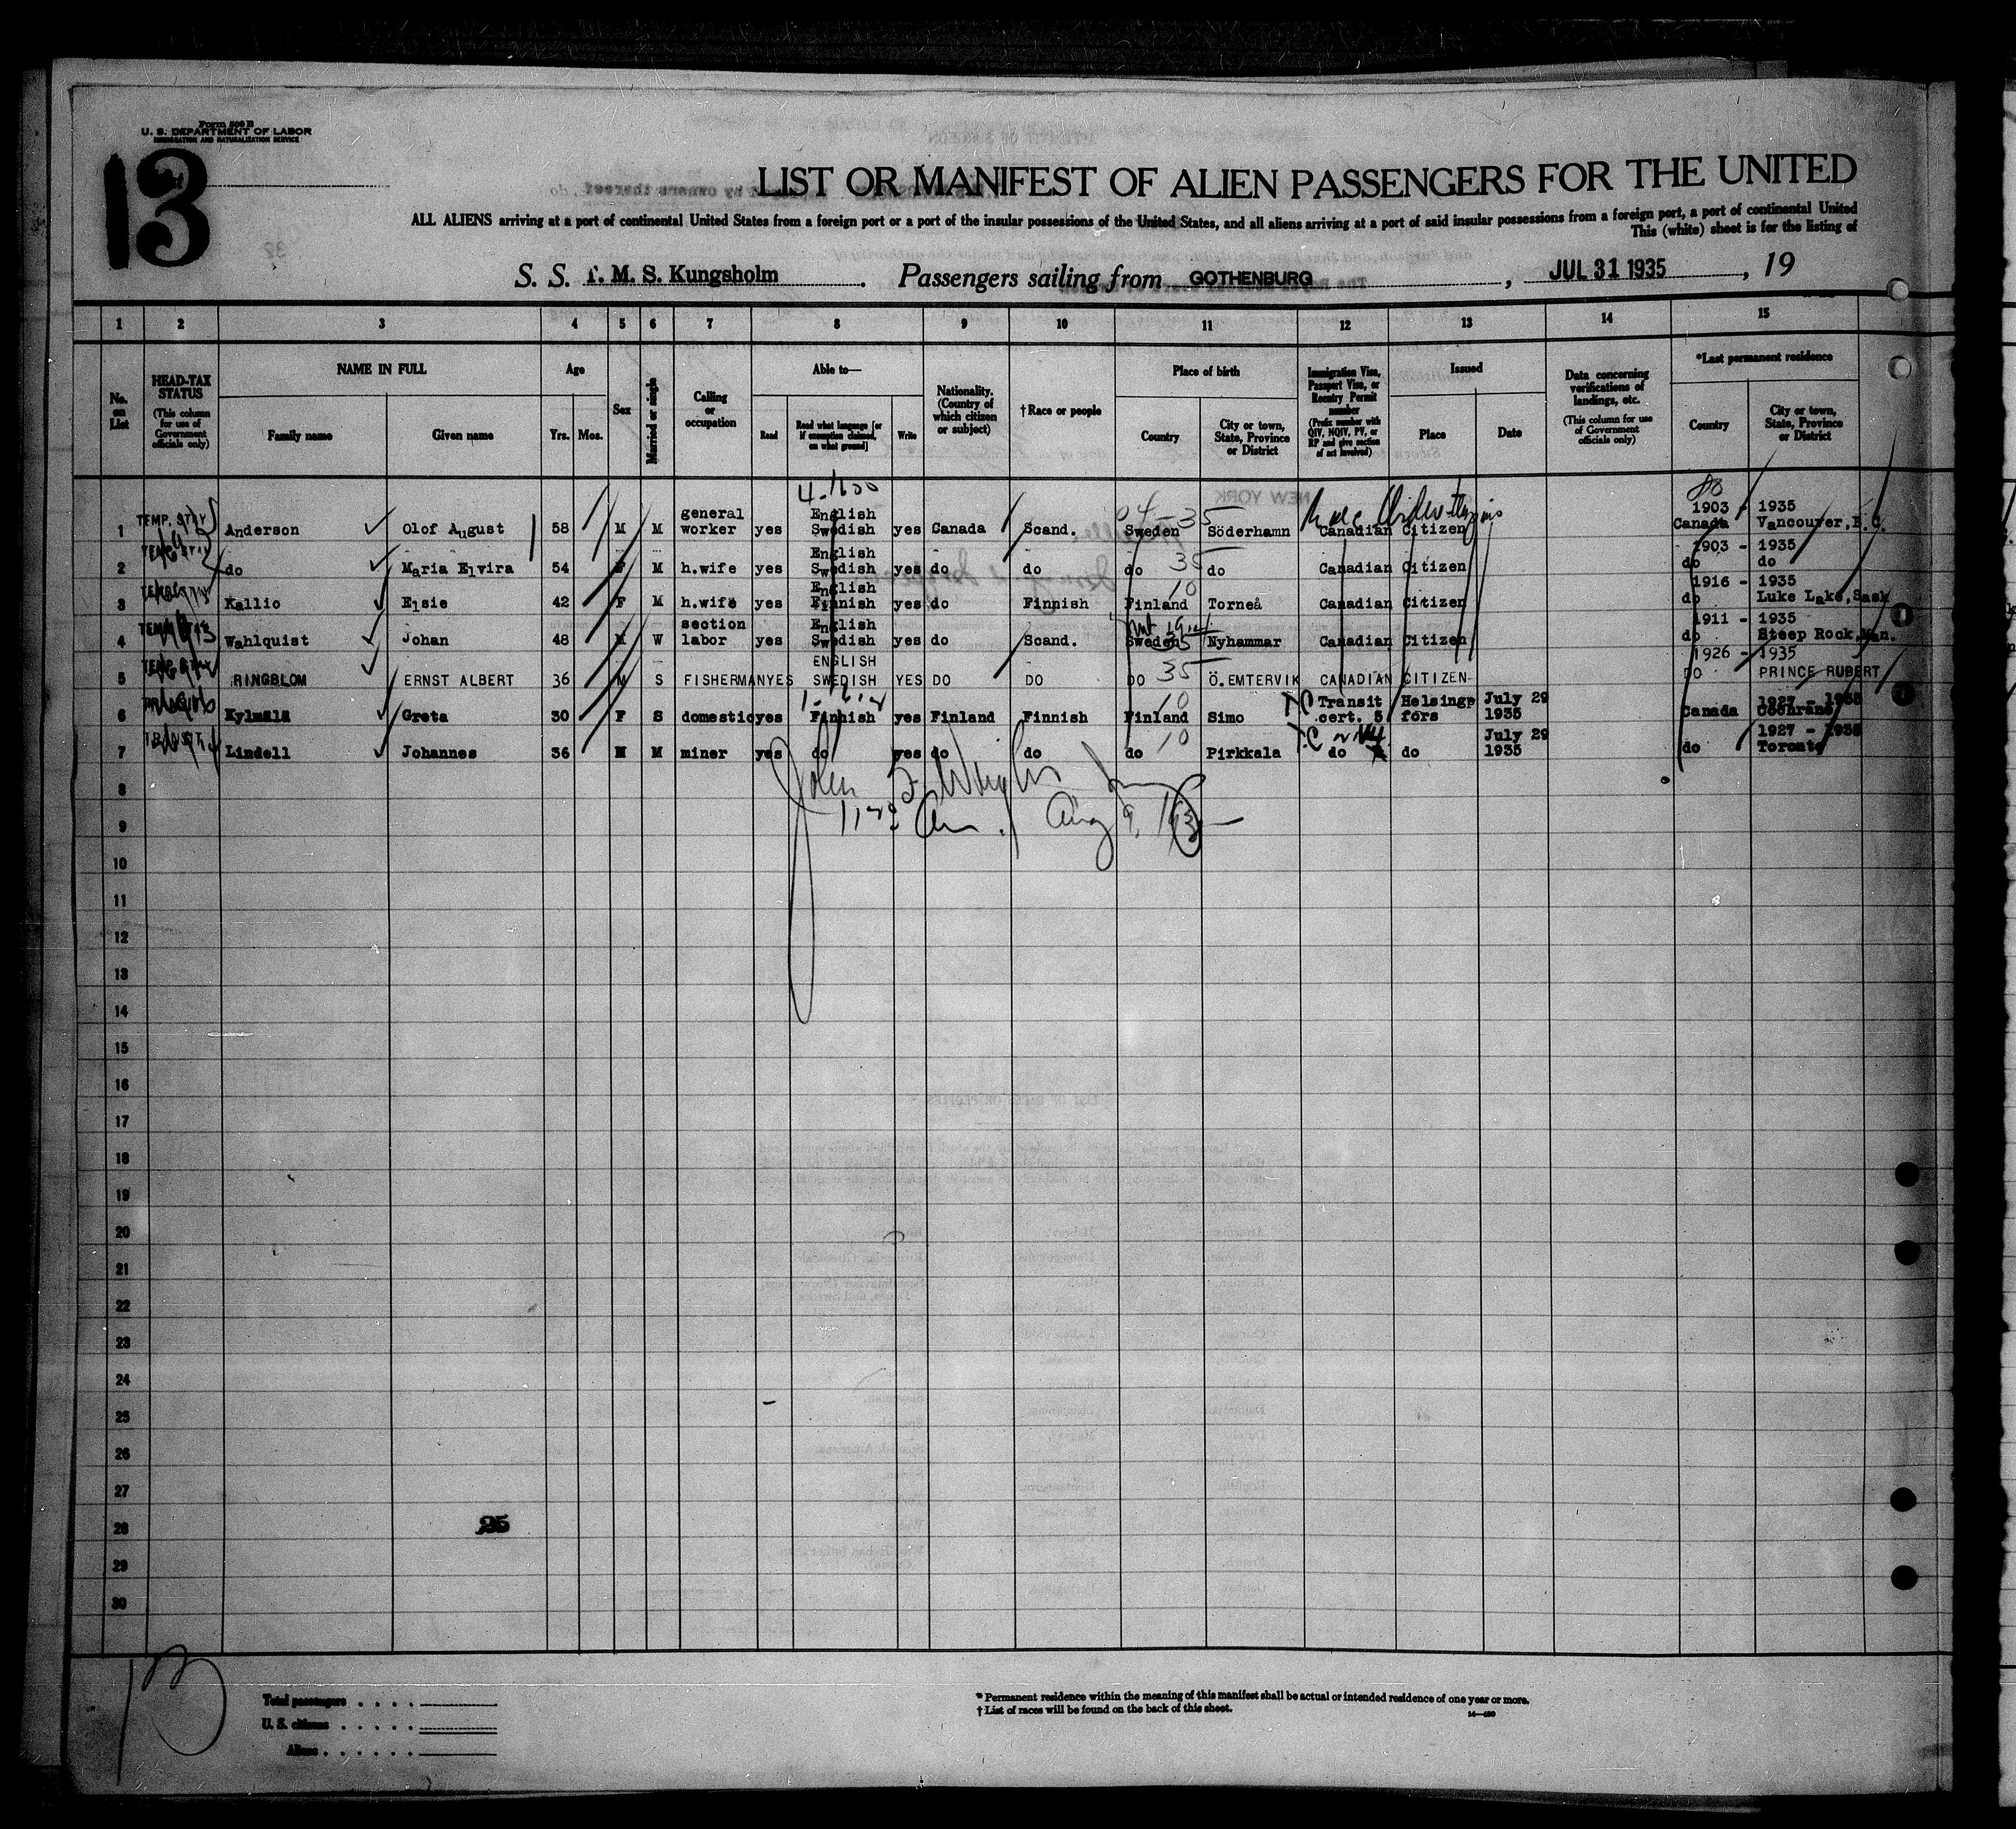 Form 500 B
U. S. DEPARTMENT OF LABOR
IMMIGRATION AND NATURALIZATION SERVICE
13
LIST OR MANIFEST OF ALIEN PASSENGERS FOR THE UNITED
ALL ALIENS arriving at a port of continental United States from a foreign port or a port of the insular possessions of the United States, and all aliens arriving at a port of said insular possessions from a foreign port, a port of continental United
This (white) sheet is for the listing of
S. S. T. M. S. Kungsholm. Passengers sailing from GOTHENBURG, JUL 31 1935, 19
1 2 3 4 5 6 7 8 9 10 11 12 13 14 15
No. on List
HEAD-TAX STATUS
(This column for use of Government officials only)
NAME IN FULL
Family name
Given name
Age
Yrs. Mos.
Sex
Married or single
Calling or occupation
Able to—
Read
Read what language [or if exemption claimed, on what ground]
Write
Nationality. (Country of which citizen or subject)
†Race or people
Place of birth
Country
City or town, State, Province or District
Immigration Visa, Passport Visa, or Reentry Permit number
(Prefix number with QIV, NQIV, PV, or RP and give section of act involved)
Issued
Place
Date
Data concerning verifications of landings, etc.
(This column for use of Government officials only)
*Last permanent residence
Country
City or town, State, Province or District
general English 1903 - 1935
1 TEMP. STAY Anderson Olof August 58 M M worker yes Swedish yes Canada Scand. Sweden 35 Söderhamn Canadian Citizen Canada Vancouver, B.C.
English 1903 - 1935
2 TEMP. STAY do Maria Elvira 54 F M h.wife yes Swedish yes do do do 35 do Canadian Citizen do do
English 10 1916 - 1935
3 Kallio Elsie 42 F M h.wife yes Finnish yes do Finnish Finland Torneå Canadian Citizen do Luke Lake, Sask
section English 1911 - 1935
4 Wahlquist Johan 48 M W labor yes Swedish yes do Scand. Sweden 35 Nyhammar Canadian Citizen do Steep Rock, Man.
ENGLISH 1926 - 1935
5 RINGBLOM ERNST ALBERT 36 M S FISHERMAN YES SWEDISH YES DO DO DO 35 Ö.EMTERVIK CANADIAN CITIZEN DO PRINCE RUBERT
10 Transit Helsingp July 29 1927 - 1935
6 Kylmälä Greta 30 F S domestic yes Finnish yes Finland Finnish Finland Simo cert. 5 fors 1935 Canada Cochrane
July 29 1927 - 1935
7 TRANSIT Lindell Johannes 36 M M miner yes do yes do do do 10 Pirkkala do do 1935 do Toronto
8
John
9
Aug 9,
10
11
12
13
14
15
16
17
18
19
20
21
22
23
24
25
26
27
28
29
30
13
Total passengers
U. S. citizens
Aliens
* Permanent residence within the meaning of this manifest shall be actual or intended residence of one year or more.
† List of races will be found on the back of this sheet.